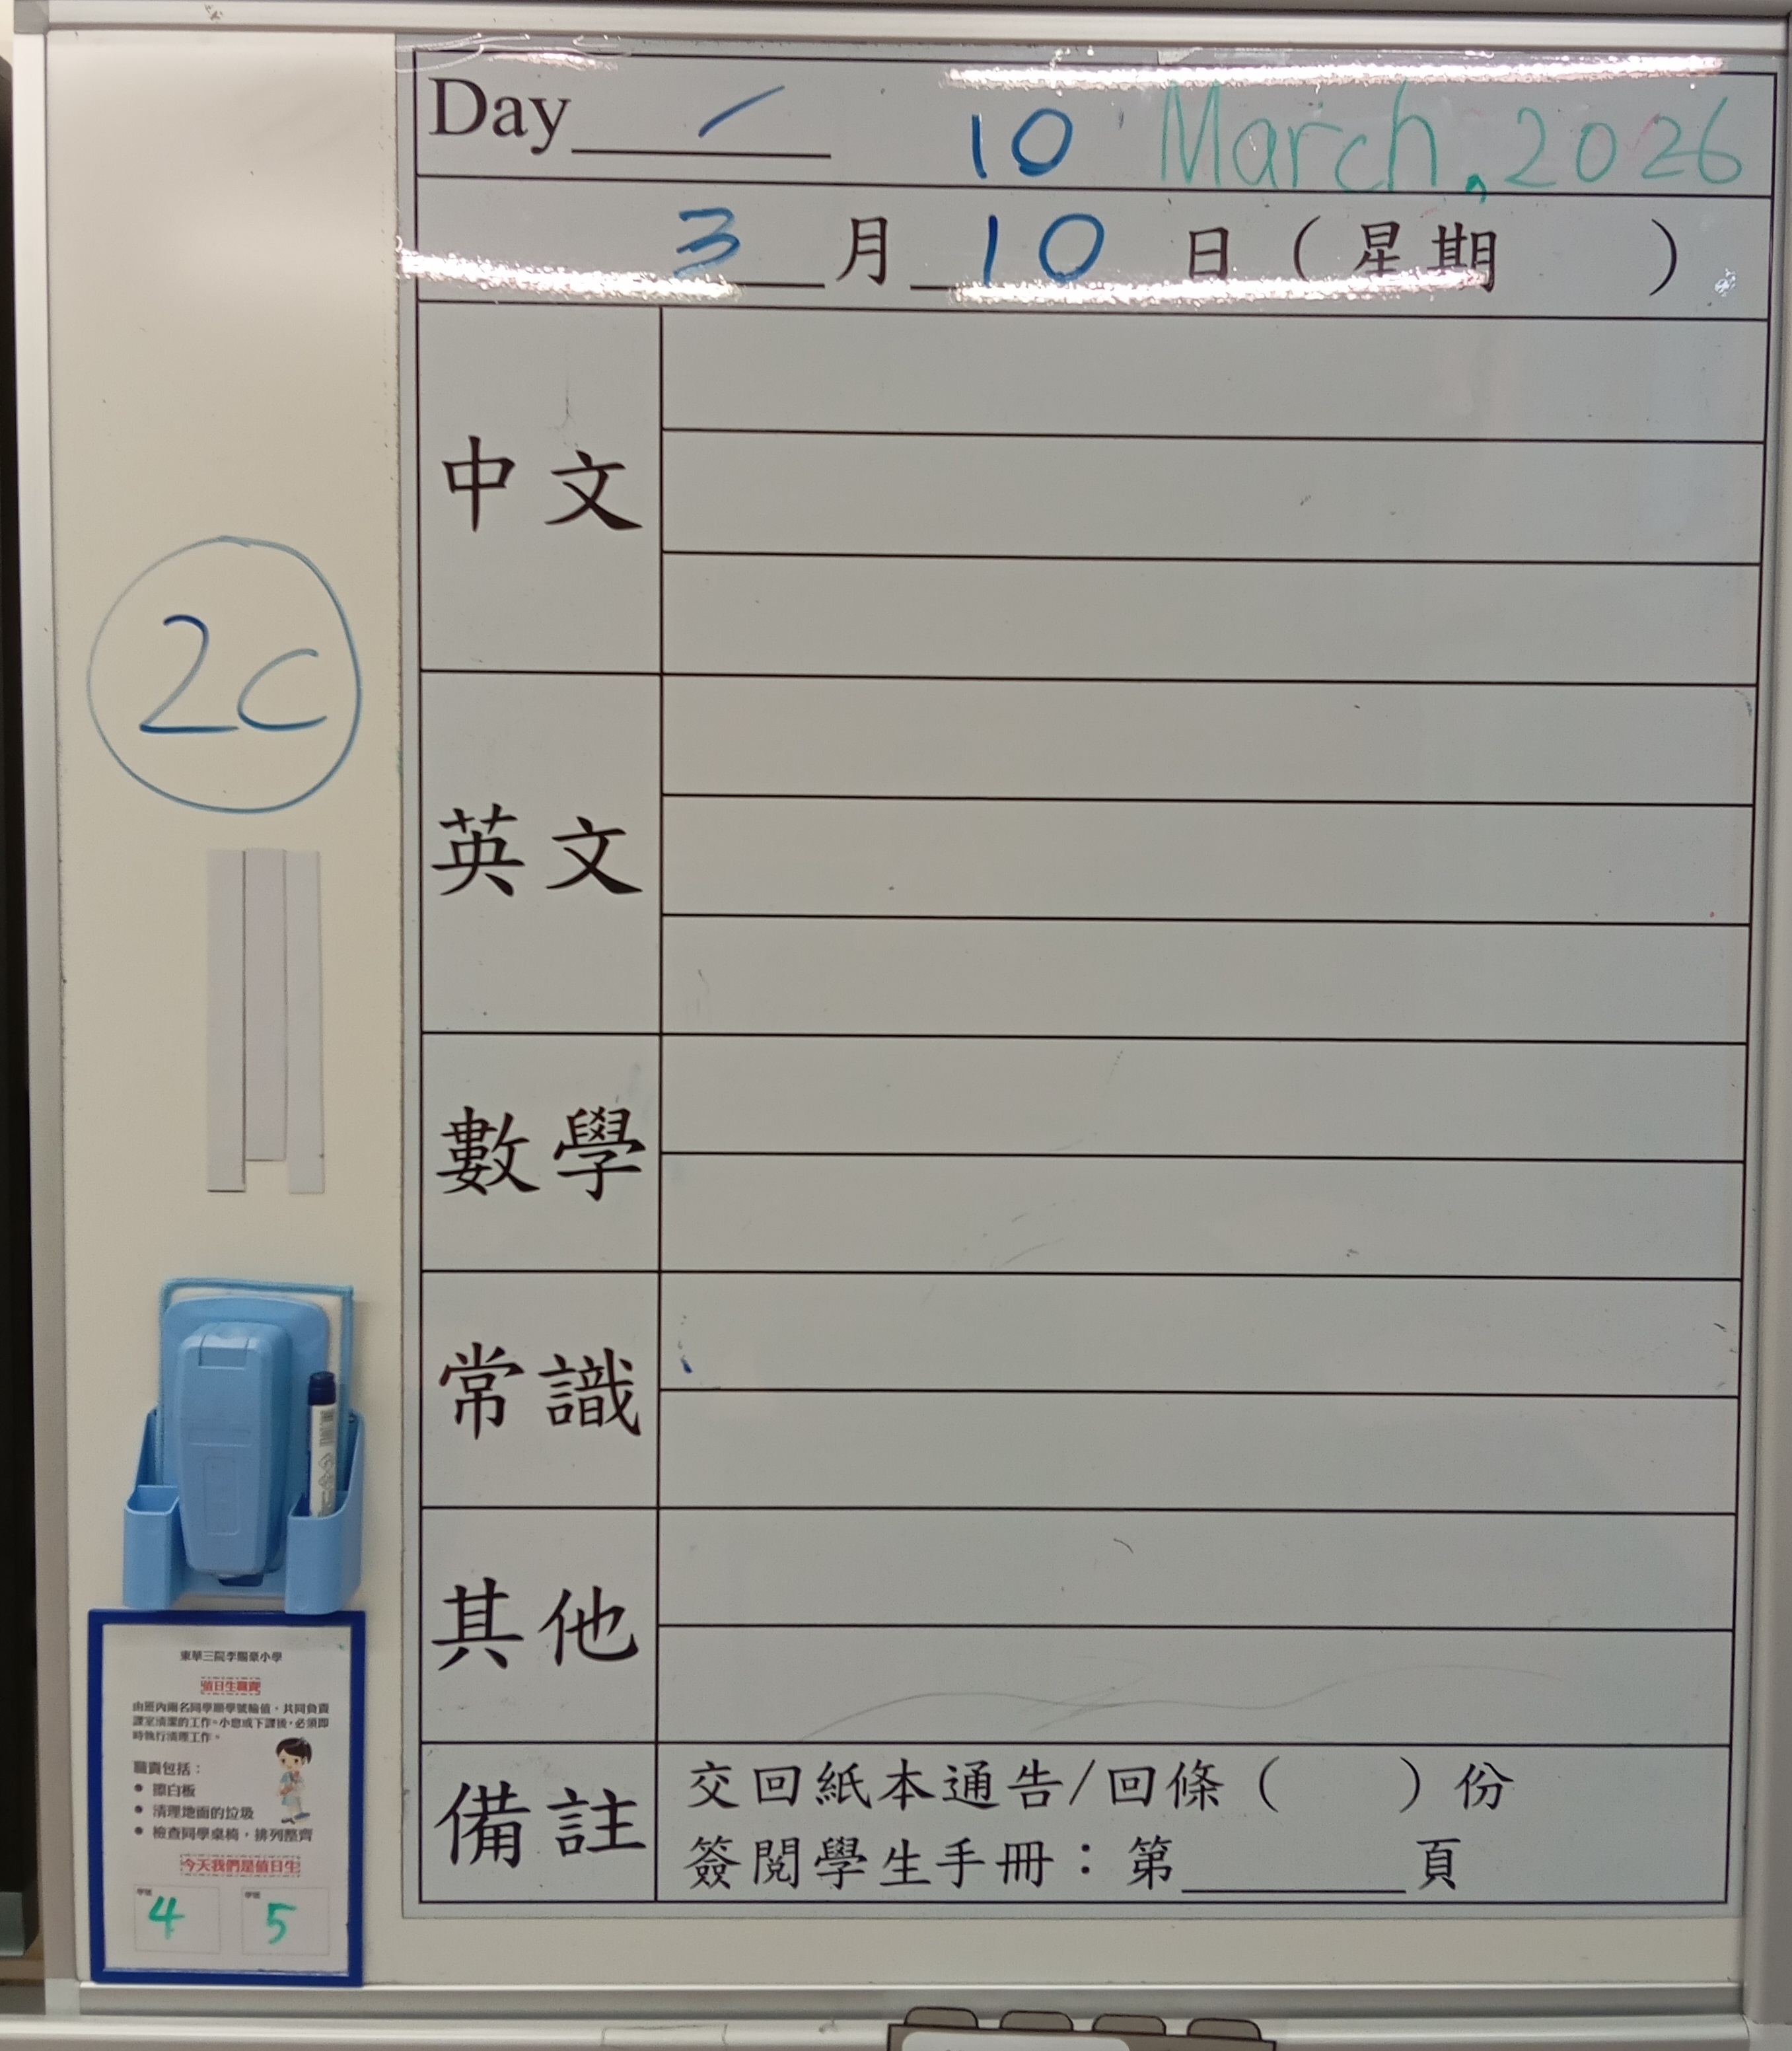 Day 10 March, 2026
3月10日(星期 )
中文
英文
數學
常識
其他
備註
交回紙本通告/回條( )份
簽閱學生手冊:第 頁
2C
東華三院李賜豪小學
值日生職責
由班內兩名同學順學號輪值,共同負責
課室清潔的工作。小息或下課後,必須即
時執行清理工作。
職責包括:
● 擦白板
● 清理地面的垃圾
● 檢查同學桌椅,排列整齊
今天我們是值日生
學號 學號
4 5